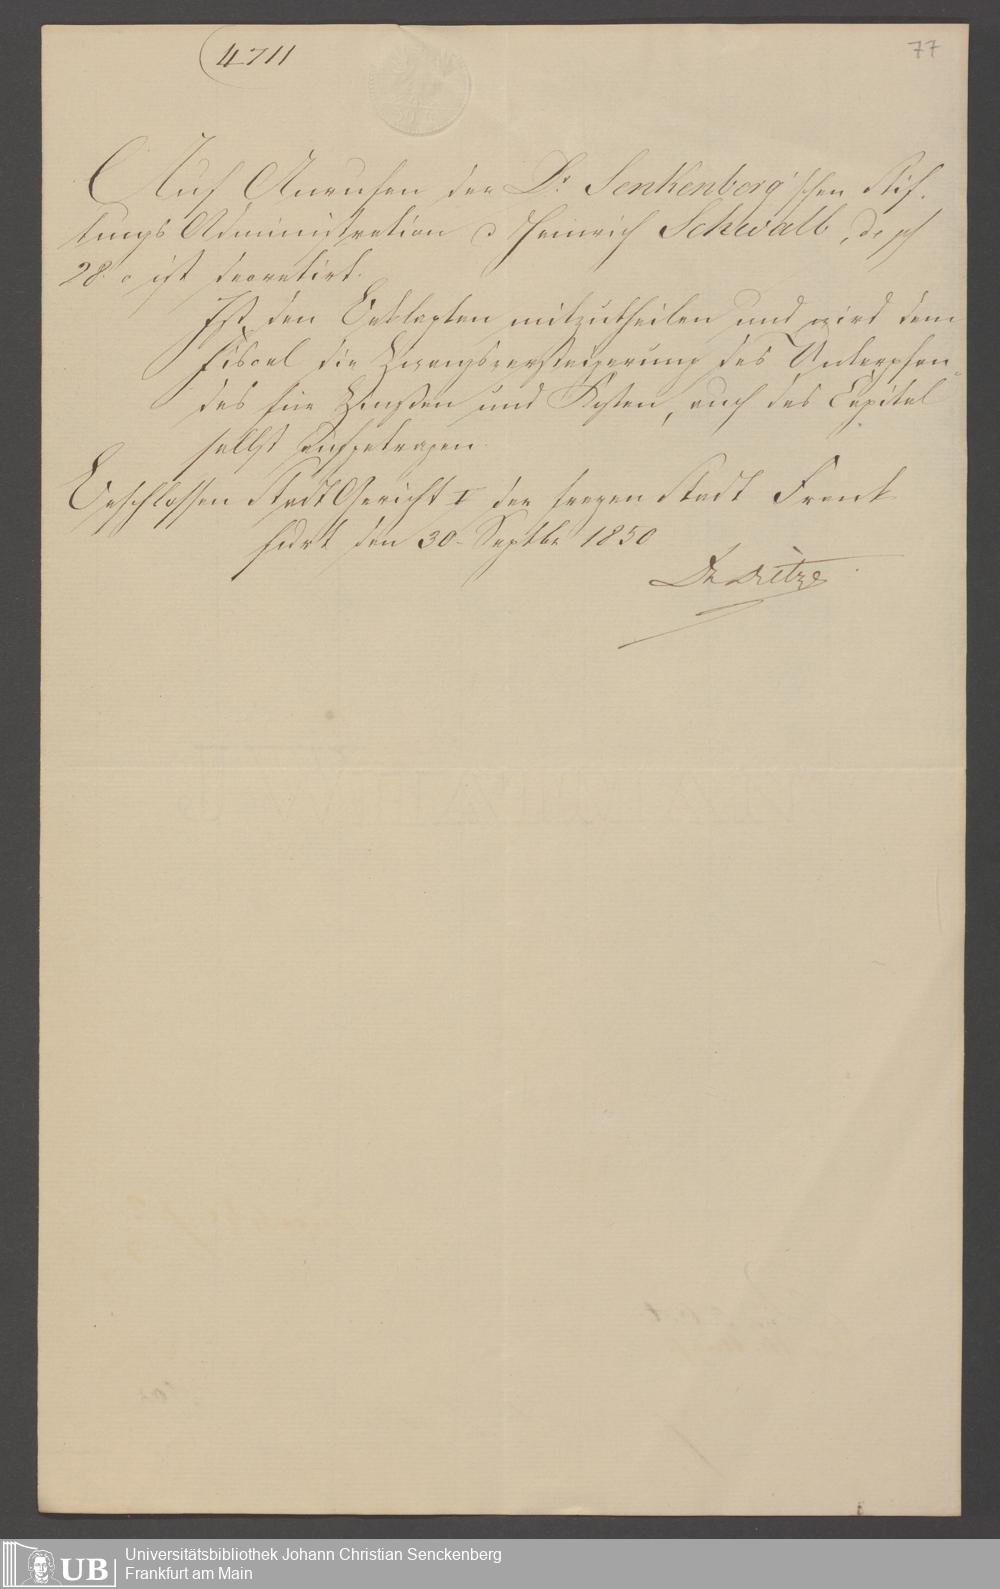 4711
77
Auf Anrufen der Dr Senkenberg'schen Stif-
tungs Administration c Heinrich Schwalb, de pf
28. c ist decretirt.
Ist den Beklagten mitzutheilen und wird dem
Fiscal die Zwangsversteigerung des Unterpfan-
des für Zinßen und Kosten, auch das Capital
selbst aufgetragen.
Geschlossen Stadt Gericht I der freyen Stadt Frank
furt den 30 Septbr 1850
Dr
UB
Universitätsbibliothek Johann Christian Senckenberg
Frankfurt am Main